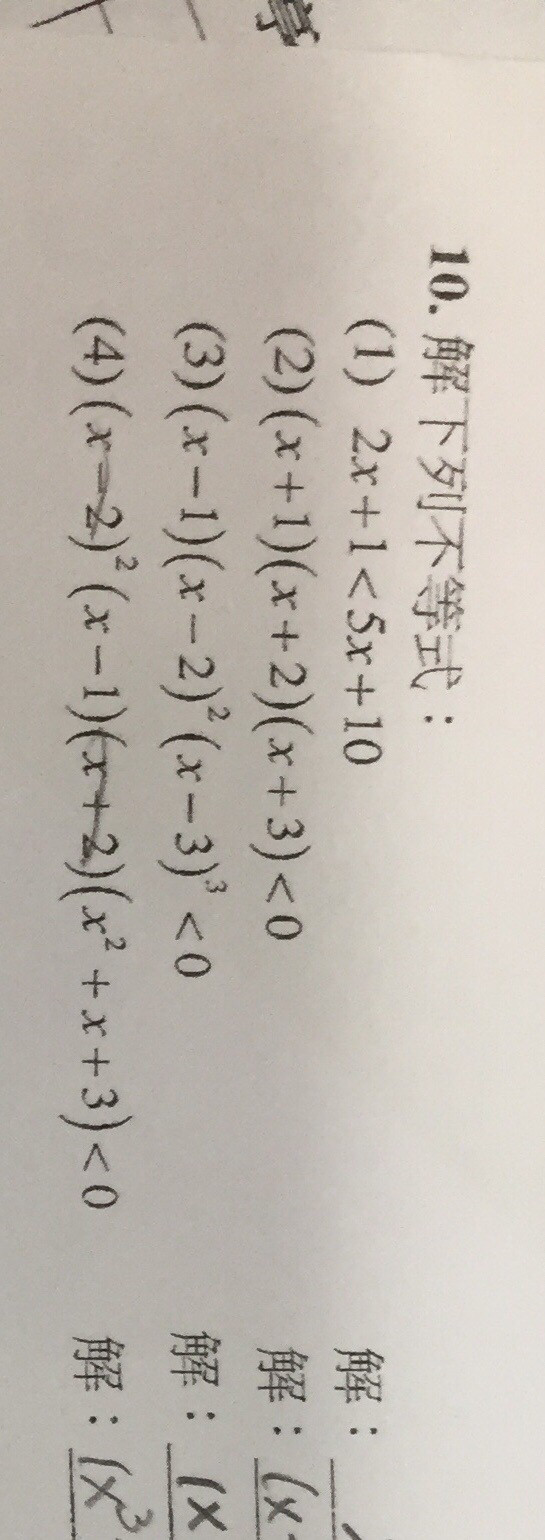 10. 解下列不等式：
(1) 2x+1<5x+10 解：
(2)(x+1)(x+2)(x+3)<0 解：(x
(3)(x-1)(x-2)²(x-3)³<0 解：(x
(4)(x-2)²(x-1)(x+2)(x²+x+3)<0 解：(x³